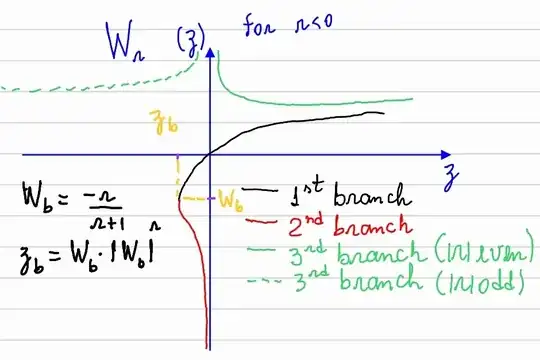 W_r (z) for r<0
z_b
z
W_b
W_b = -r / r+1
z_b = W_b · |W_b|^r
1st branch
2nd branch
3rd branch (|r| even)
3rd branch (|r| odd)